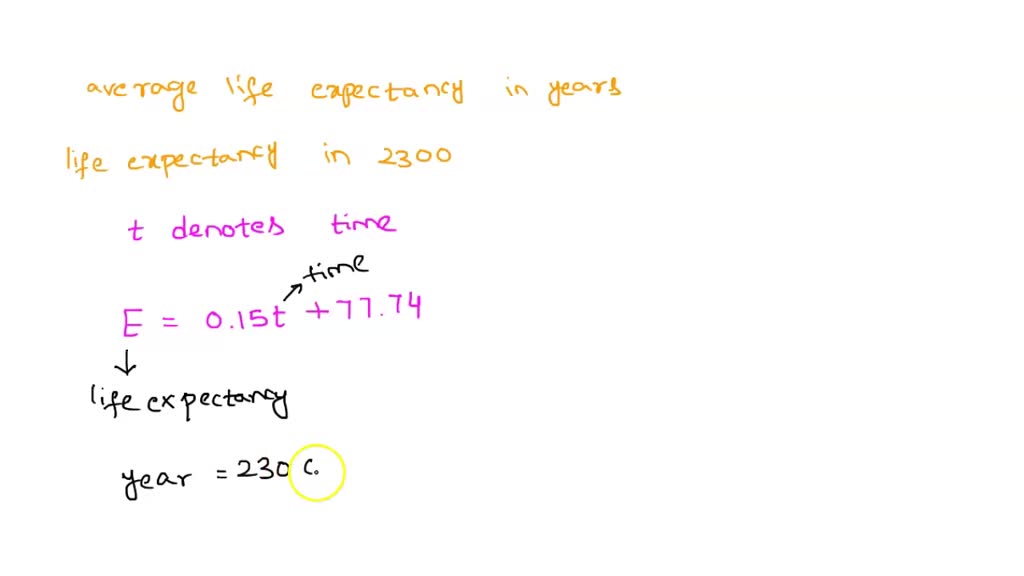 average life expectancy in years
life expectancy in 2300
t denotes time
time
E = 0.15t + 77.74
life expectancy
year = 230